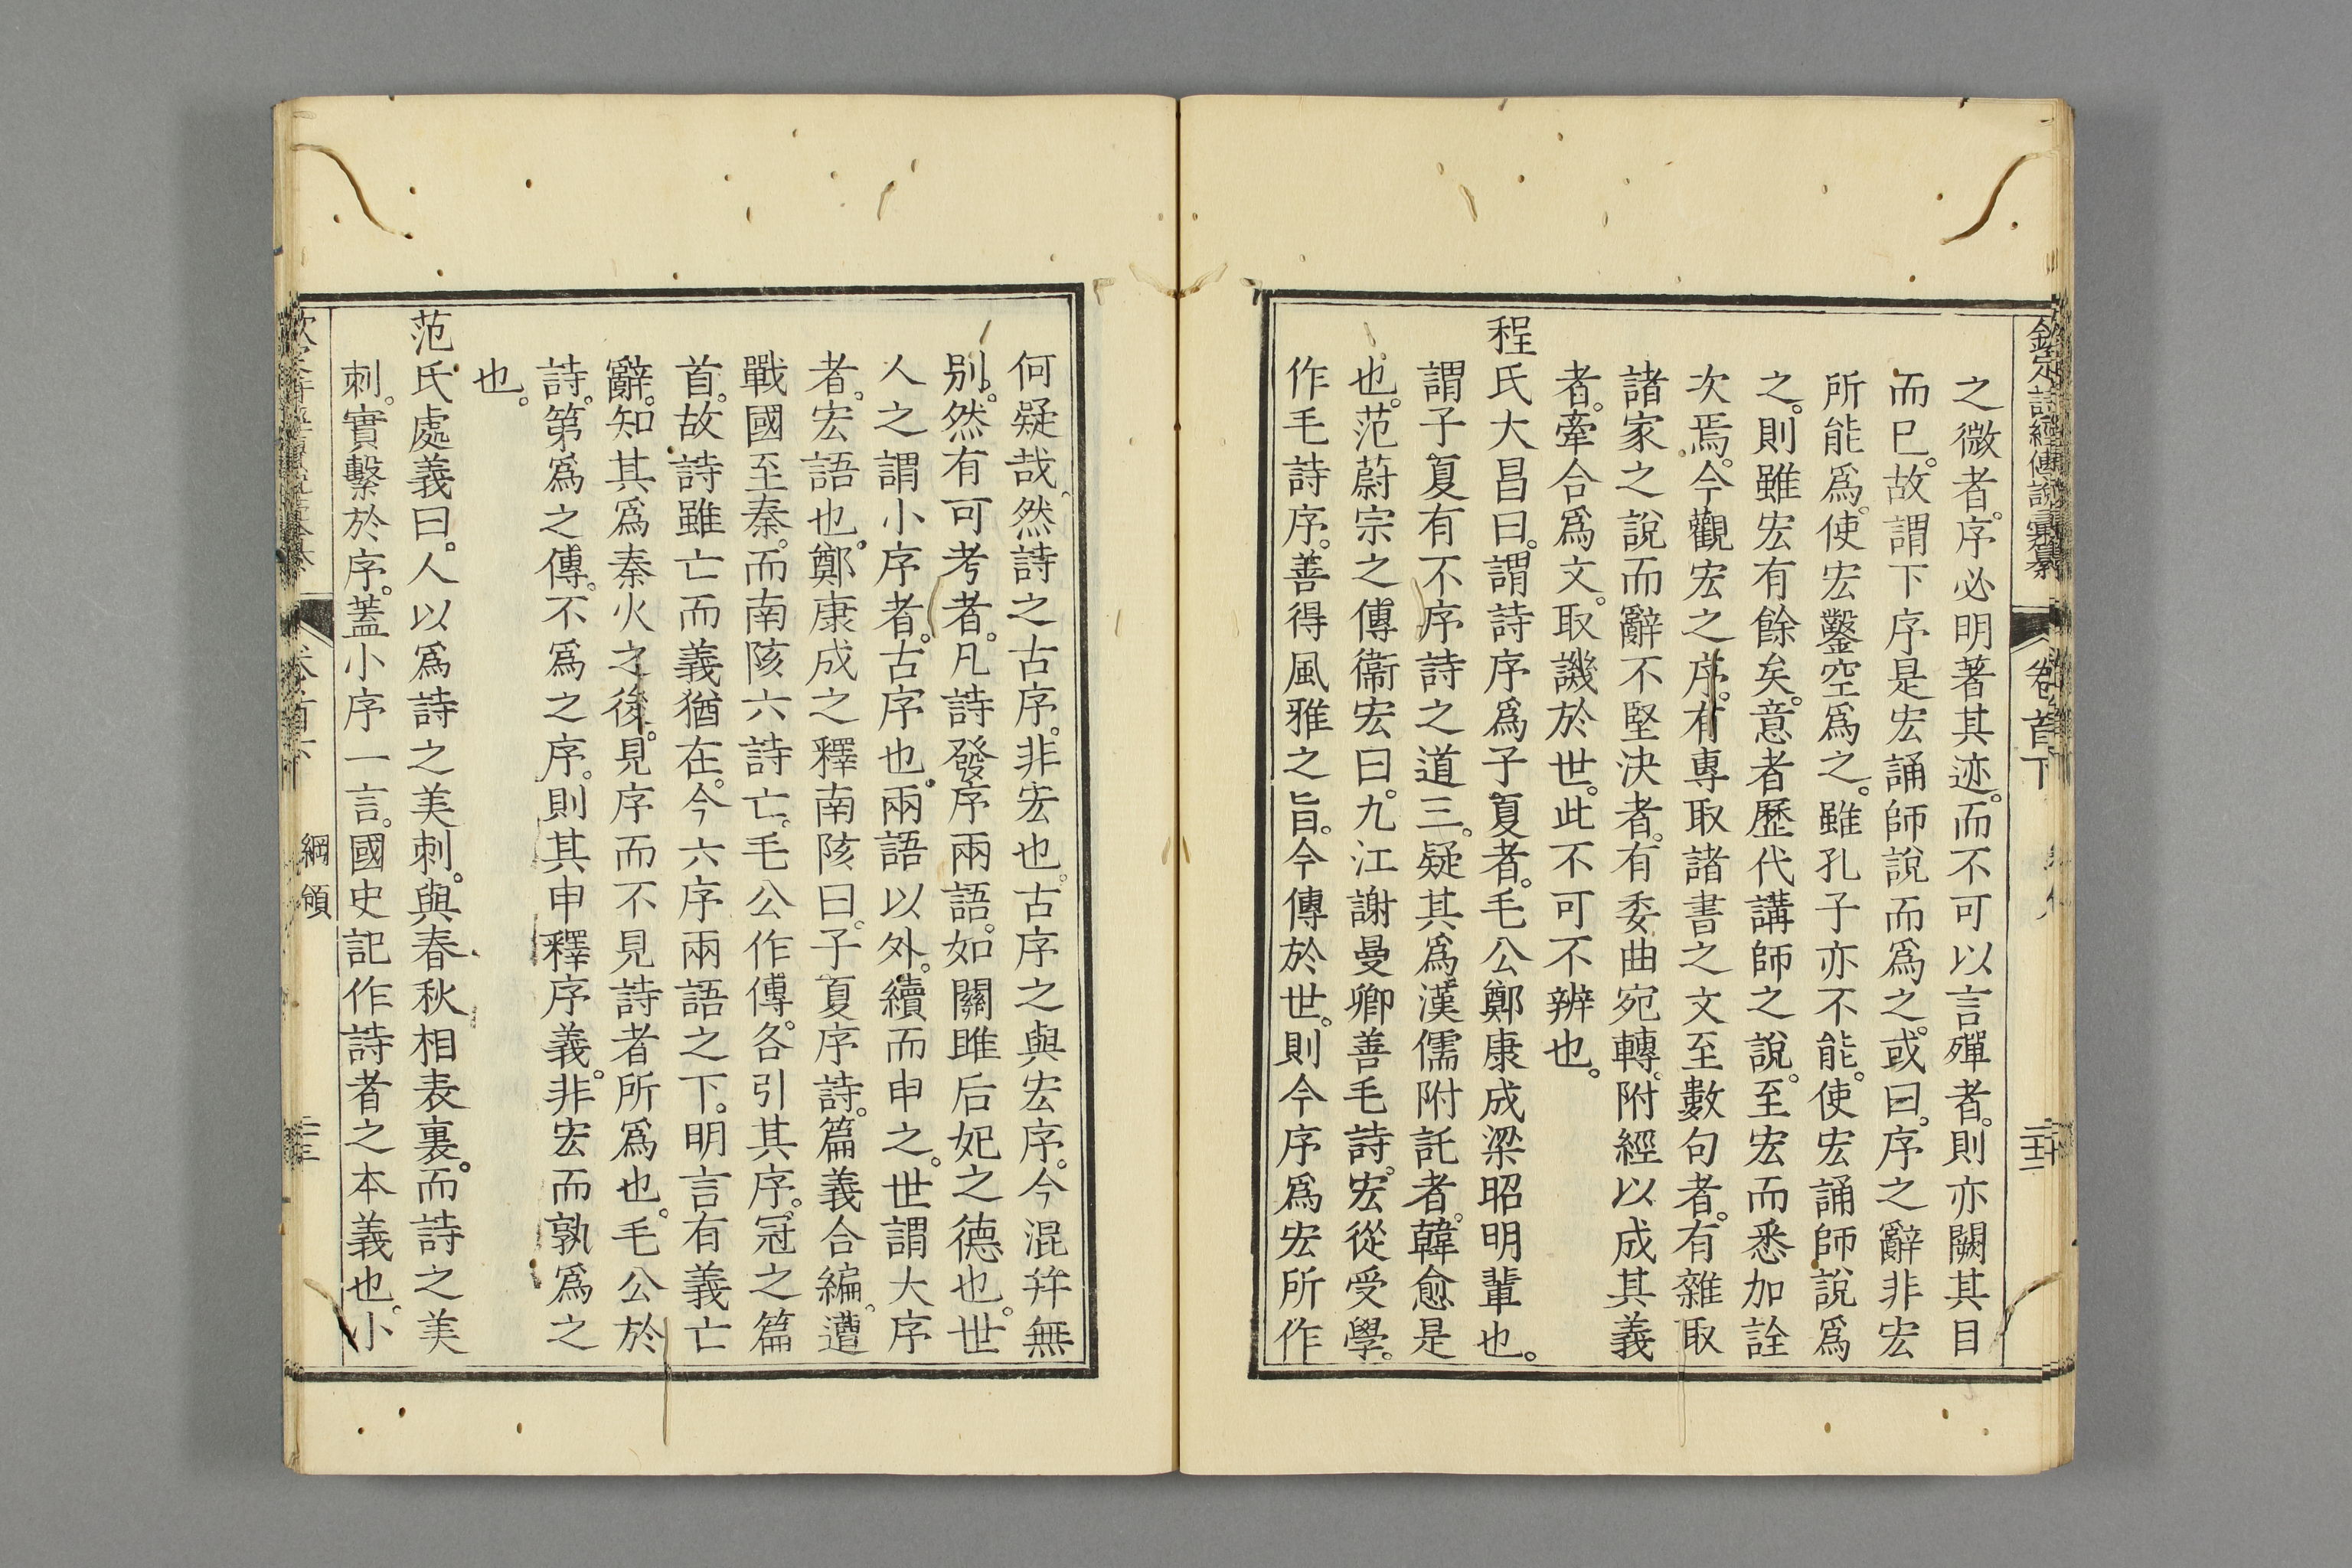 欽定詩經傳說彙纂 卷首下
之微者。序必明著其迹。而不可以言殫者。則亦闕其目
而巳。故謂下序是宏誦師說而爲之。或曰。序之辭非宏
所能爲。使宏鑿空爲之。雖孔子亦不能。使宏誦師說爲
之。則雖宏有餘矣。意者歷代講師之說。至宏而悉加詮
次焉。今觀宏之序。有專取諸書之文至數句者。有雜取
諸家之說而辭不堅決者。有委曲宛轉。附經以成其義
者。牽合爲文。取譏於世。此不可不辨也。
程氏大昌曰。謂詩序爲子夏者。毛公鄭康成梁昭明輩也。
謂子夏有不序詩之道三。疑其爲漢儒附託者。韓愈是
也。范蔚宗之傳衞宏曰。九江謝曼卿善毛詩。宏從受學。
作毛詩序。善得風雅之旨。今傳於世。則今序爲宏所作
何疑哉。然詩之古序。非宏也。古序之與宏序。今混幷無
別。然有可考者。凡詩發序兩語。如關雎后妃之德也。世
人之謂小序者。古序也。兩語以外。續而申之。世謂大序
者。宏語也。鄭康成之釋南陔曰。子夏序詩。篇義合編。遭
戰國至秦。而南陔六詩亡。毛公作傳。各引其序。冠之篇
首。故詩雖亡而義猶在。今六序兩語之下。明言有義亡
辭。知其爲秦火之後。見序而不見詩者所爲也。毛公於
詩。第爲之傳。不爲之序。則其申釋序義。非宏而孰爲之
也。
范氏處義曰。人以爲詩之美刺。與春秋相表裏。而詩之美
刺。實繫於序。蓋小序一言。國史記作詩者之本義也。小
卷首下 綱領